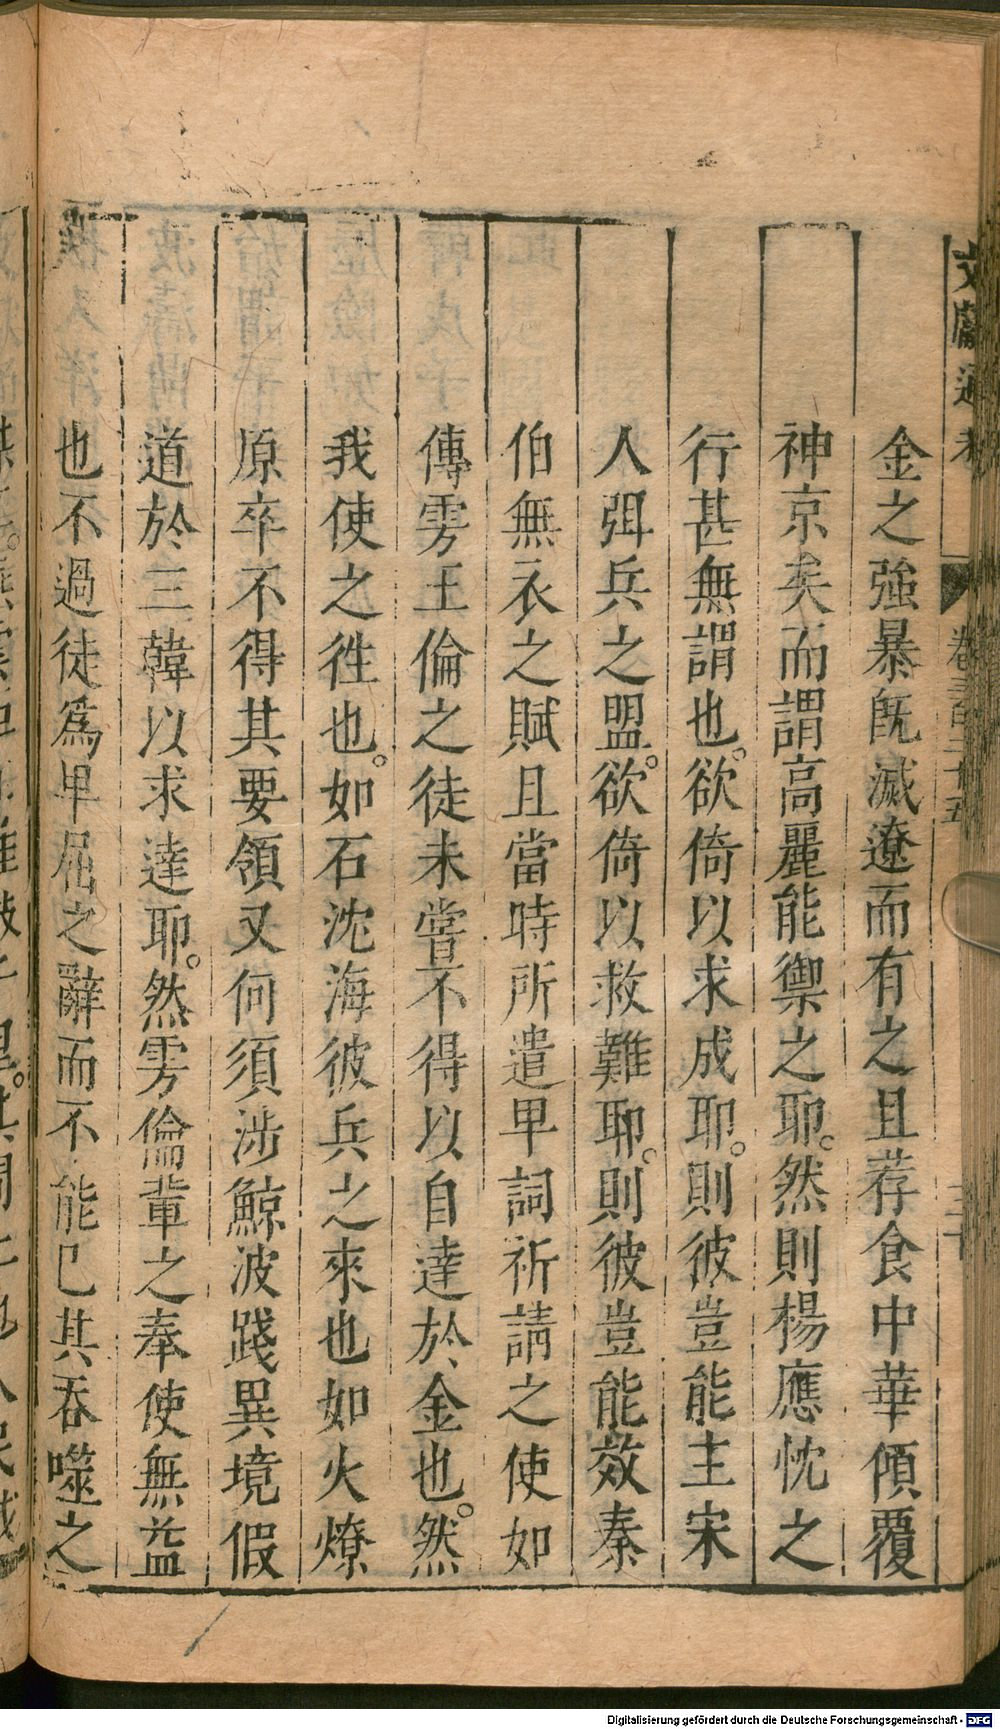 文獻通考 卷三百二十五 三十
金之強暴旣滅遼而有之且荐食中華傾覆
神京矣而謂高麗能禦之耶。然則楊應忱之
行甚無謂也。欲倚以求成耶。則彼豈能主宋
人弭兵之盟。欲倚以救難耶。則彼豈能效秦
伯無衣之賦且當時所遣卑詞祈請之使如
傳雱王倫之徒未嘗不得以自達於金也。然
我使之徃也。如石沈海彼兵之來也如火燎
原卒不得其要領又何須涉鯨波踐異境假
道於三韓以求達耶。然雱倫輩之奉使無益
也不過徒爲卑屈之辭而不能已其吞噬之
Digitalisierung gefördert durch die Deutsche Forschungsgemeinschaft - DFG